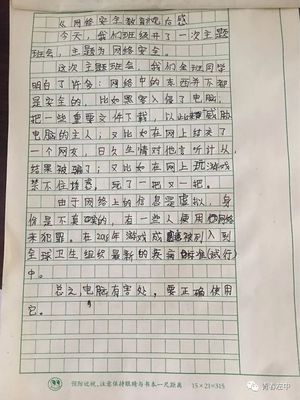 《网络安全教育观后感
今天,我们班级开了一次主题
班会,主题为网络安全。
这次主题班会,我们全班同学
明白了许多:网络中的东西并不都
是安全的,比如黑客入侵了电脑,
把一些重要文件下载,以此来威胁
电脑的主人;又比如在网上结交了
一个网友,日久生情对他言听计从,
结果被骗了;又比如在网上玩游戏
禁不住诱惑,玩了一把又一把。
由于网络上的信息是虚拟,身
份是不真实的,有一些人使用网络
来犯罪。在2018年游戏成瘾被列入到
全球卫生组织最新的疾病标准(试行)
中。
总之,电脑有害处,要正确使用
它。
预防近视,注意保持眼睛与书本一尺距离
15×21=315